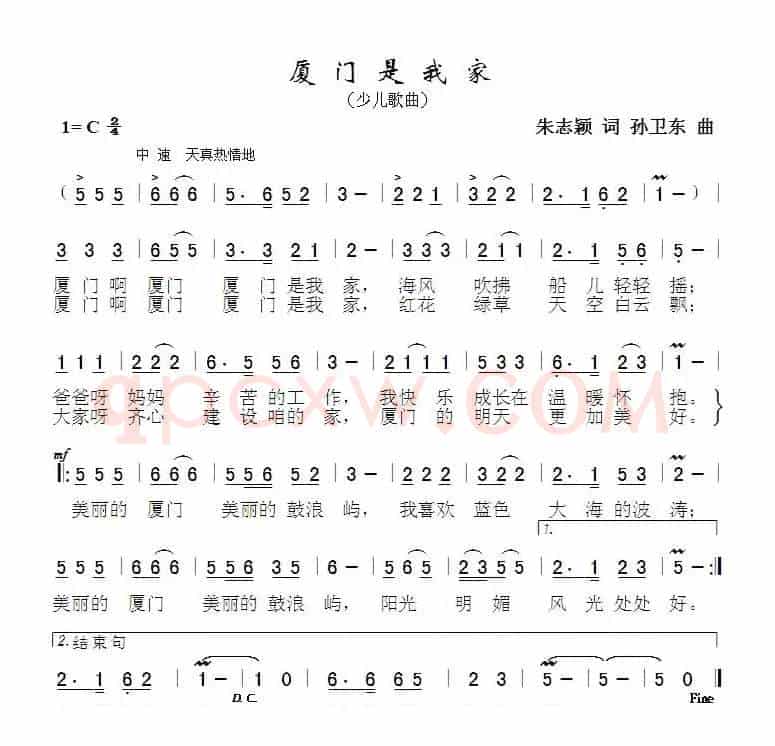 厦门是我家
（少儿歌曲）
1=C 2/4 朱志颖 词 孙卫东 曲
中速 天真热情地
（5 5 5 | 6 6 6 | 5· 6 5 2 | 3 – | 2 2 1 | 2 2 3 | 2· 1 6 2 | 1 – ）|
3 3 3 | 6 5 5 | 3· 3 2 1 | 2 – | 3 3 3 | 2 1 1 | 2· 1 5 6 | 5 – |
厦门啊 厦门 厦门是我家， 海风 吹拂 船儿轻轻摇；
厦门啊 厦门 厦门是我家， 红花 绿草 天空白云飘；
1 1 1 | 2 2 2 | 6· 5 5 6 | 3 – | 2 1 1 1 | 5 3 3 | 6· 1 2 3 | 1 – |
爸爸呀 妈妈 辛苦的工作， 我快乐 成长在 温暖怀抱。
大家呀 齐心 建设咱的家， 厦门的 明天 更加美好。
qpcxw.COM
mf
‖: 5 5 5 | 6 6 6 | 5 5 6 5 2 | 3 – | 5 5 5 | 3 2 2 | 2· 1 5 3 | 2 – |
美丽的 厦门 美丽的鼓浪屿， 我喜欢 蓝色 大海的波涛；
1.
5 5 5 | 6 6 6 | 5 5 3 3 5 | 6 – | 5 6 5 | 2 3 5 5 | 2· 1 2 3 | 5 – :‖
美丽的 厦门 美丽的鼓浪屿， 阳光 明媚 风光处处好。
2.结束句
2· 1 6 2 | 1 – | 1 0 | 6· 6 6 5 | 6 2 | 5 – | 5 – | 5 0 ‖
D.C. Fine